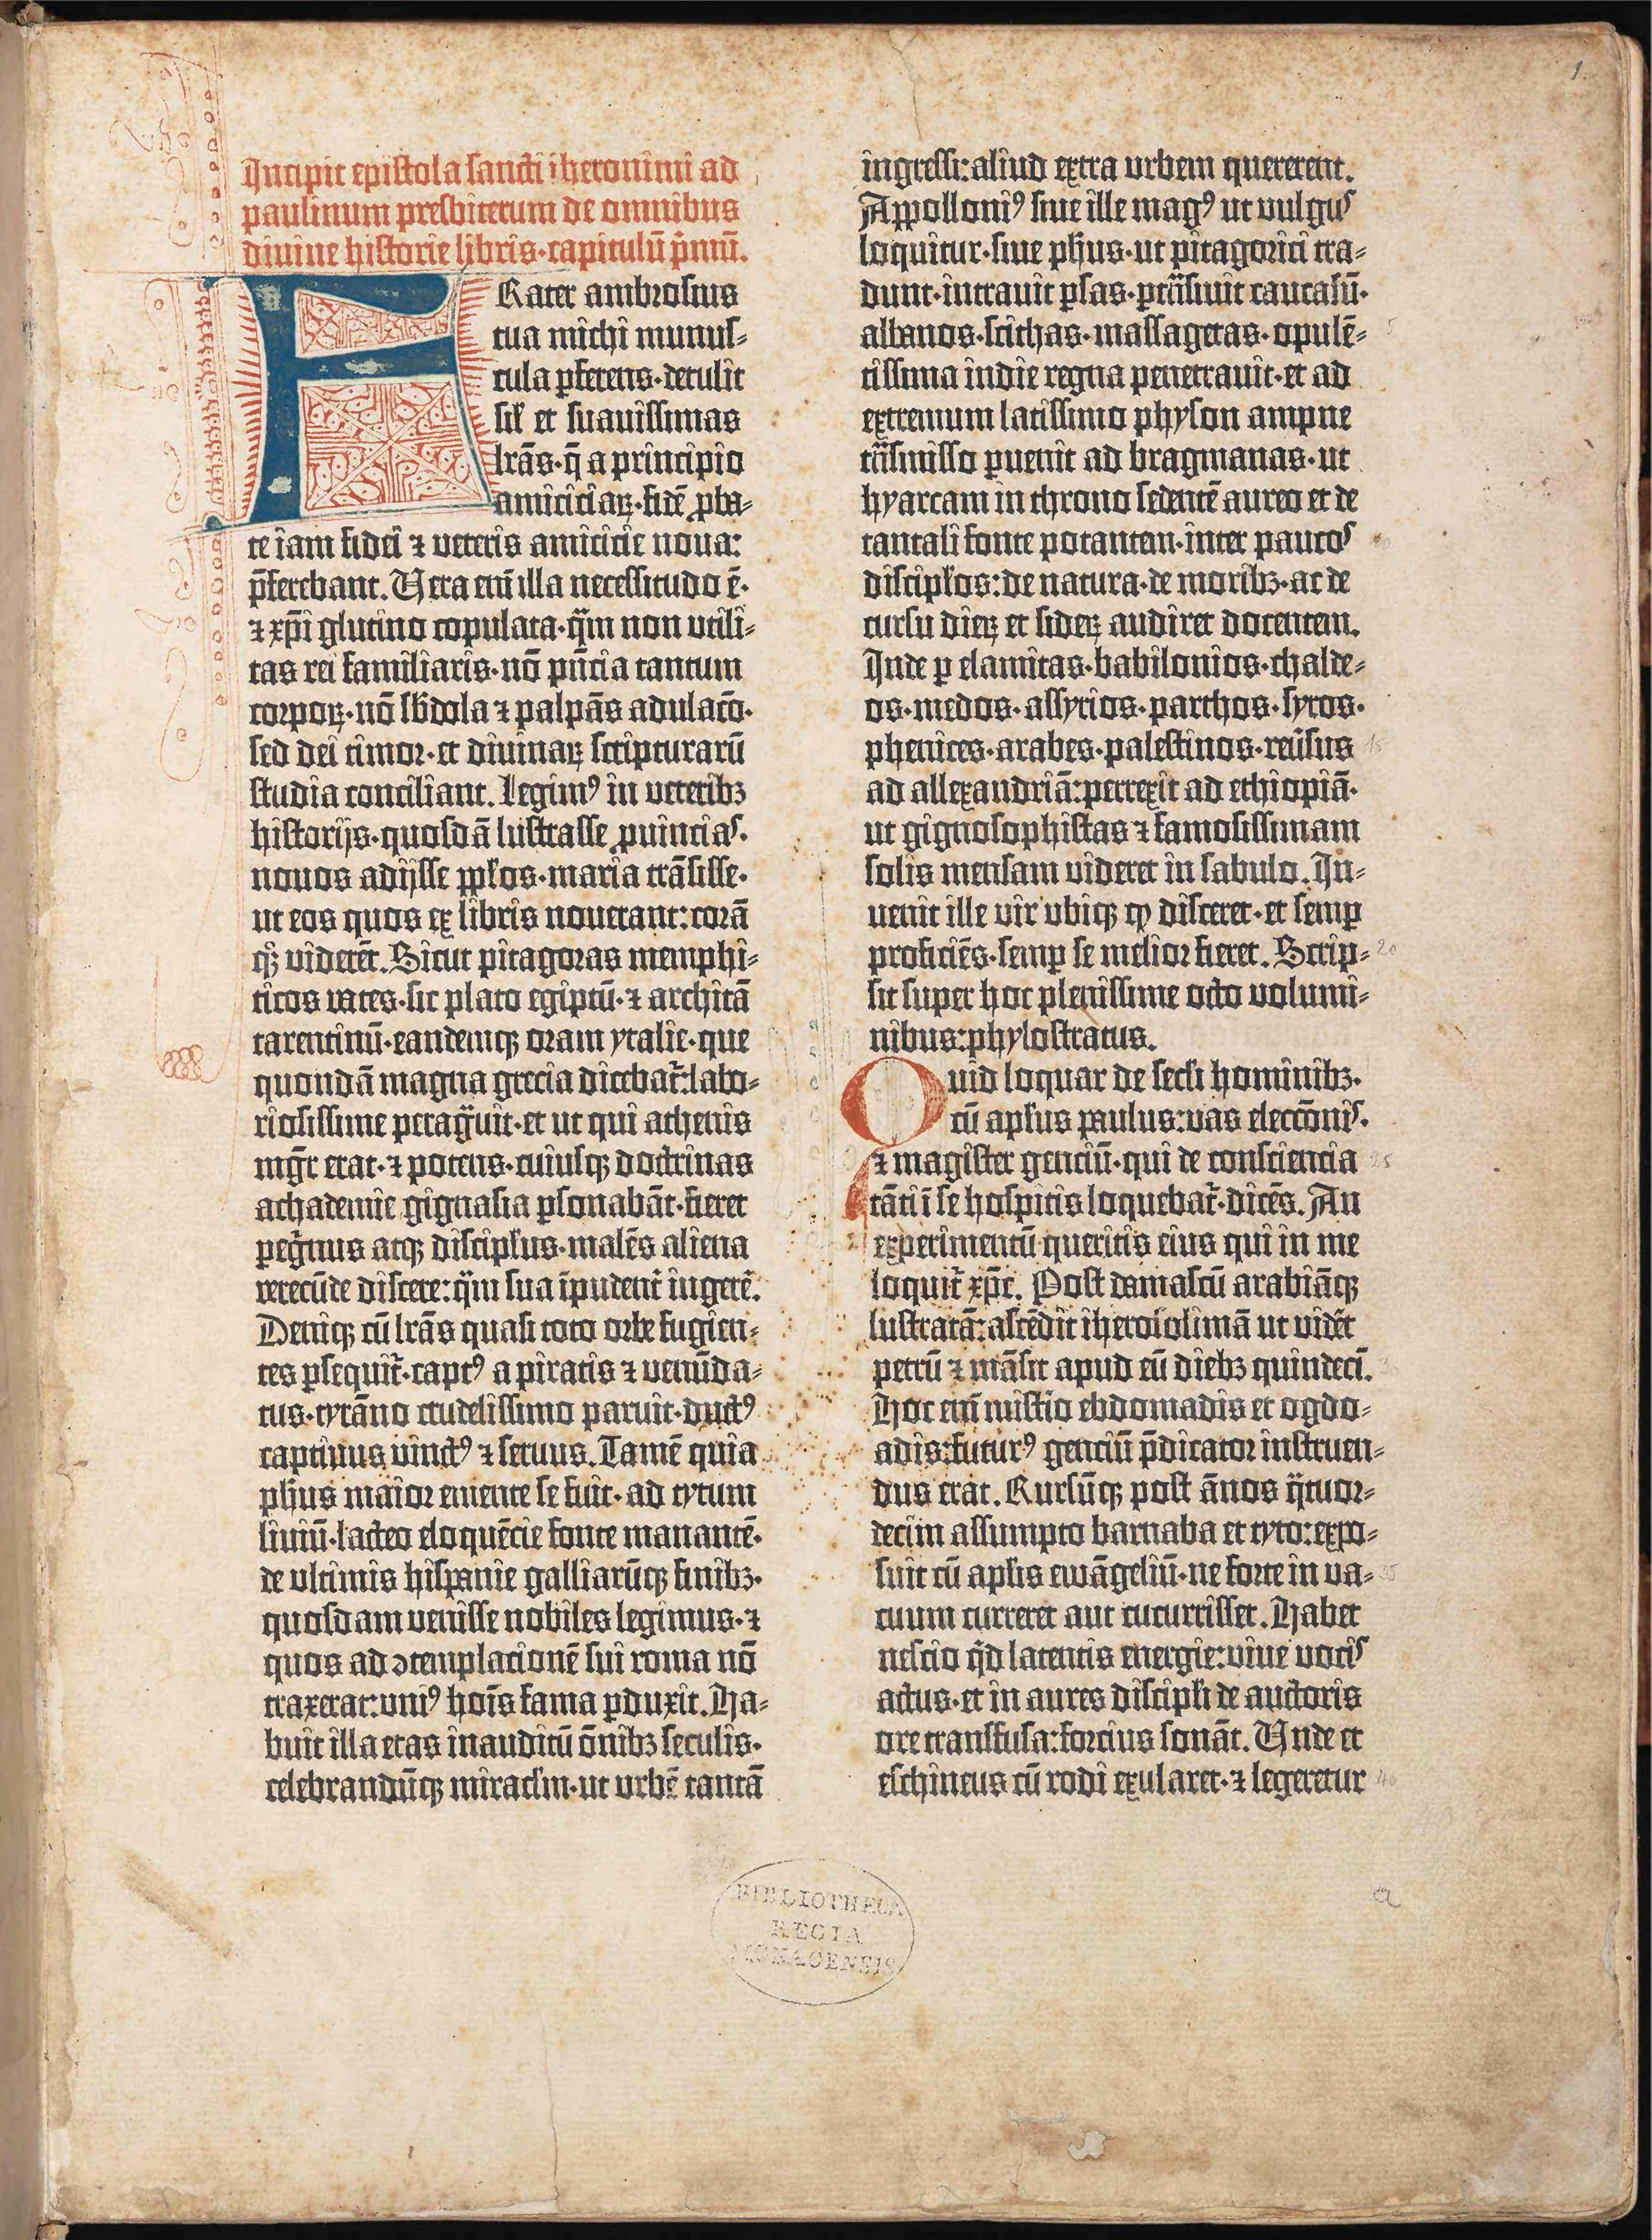 Incipit epistola sancti iheronimi ad
paulinum presbiterum de omnibus
diuine historie libris·capitulū p̄mū.
FRater ambrosius
tua michi munus⸗
cula ꝑferens·detulit
sil̛ et suauissimas
lr̄as·q̄ a principio
amiciciaꝝ·fidē ꝓba⸗
te iam fidei ⁊ veteris amicicie noua:
p̄ferebant. Vera eni̅ illa necessitudo ē·
⁊ xp̄i glutino copulata·qᷓm non vtili⸗
tas rei familiaris·nō pn̄cia tantum
corpoꝝ·nō sb̄dola ⁊ palpās adulacō·
sed dei timor·et diuinaꝝ scripturarū
studia conciliant. Legimꝰ in veteribꝫ
historijs·quosdā lustrasse ꝓuincias.
nouos adijsse ppl̛os·maria trāsisse·
ut eos quos ex libris nouerant: corā
qꝫ viderēt. Sicut pitagoras memphi⸗
ticos vates·sic plato egiptū·⁊ architā
tarentinū·eandemqꝫ oram ytalie·que
quondā magna grecia dicebat᷑: labo⸗
riosissime peragᷓuit·et ut qui athenis
mgr̄ erat·⁊ potens·cuiusqꝫ doctrinas
achademie gignasia ꝑsonabāt·fieret
peg̓nus atqꝫ discipl̛us·malēs aliena
verecūde discere: qᷓm sua īpudent᷑ ingerē.
Deniqꝫ cū lr̄as quasi toto orbe fugien⸗
tes ꝑsequit᷑·captꝰ a piratis ⁊ venūda⸗
tus·tyrāno crudelissimo paruit·ductꝰ
captiuus vinctꝰ ⁊ seruus. Tamē quia
ph̄us maior emente se fuit·ad tytum
liuiū·lacteo eloquēcie fonte manantē·
de vltimis hispanie galliarūqꝫ finibꝫ·
quosdam venisse nobiles legimus·⁊
quos ad ꝯtemplacionē sui roma nō
traxerat: vniꝰ hoīs fama ꝑduxit. Ha⸗
buit illa etas inauditū ōnibꝫ seculis·
celebrandūqꝫ miracl̛m·ut urbē tantā
ingressi: aliud extra urbem quererent.
Appolloniꝰ siue ille magꝰ ut vulgus
loquitur·siue ph̄us·ut pitagorici tra⸗
dunt·intrauit ꝑsas·ptᷓnsiuit caucasū·
albanos·scithas·massagetas·opulē⸗
tissima indie regna penetrauit·et ad
extremum latissimo physon ampne
tᷓnsmisso ꝑuenit ad bragmanas·ut
hyarcam in throno sedentē aureo et de
tantali fonte potantem·inter paucos
discipl̛os: de natura·de moribꝫ·ac de
cursu dieꝝ et sideꝝ audiret docentem.
Inde ꝑ elamitas·babilonios·chalde⸗
os·medos·assyrios·parthos·syros·
phenices·arabes·palestinos·reūsus
ad allexandriā: perrexit ad ethiopiā·
ut gignosophistas ⁊ famosissimam
solis mensam videret in sabulo. In⸗
uenit ille vir ubiqꝫ qđ disceret·et semꝑ
proficiēs·semꝑ se melior fieret. Scrip⸗
sit super hoc plenissime octo volumi⸗
nibus: phylostratus.
Quid loquar de secl̛i hominibꝫ·
cū apl̛us paulus: vas eleccōnis·
⁊ magister genciū·qui de consciencia
tāti ī se hospitis loquebat᷑·dicēs. An
experimentū queritis eius qui in me
loquit᷑ xp̄c. Post damascū arabiāqꝫ
lustratā: ascēdit iherosolimā ut vidēt
petrū ⁊ māsit apud eū diebꝫ quindeci̅.
Hoc eni̅ mistio ebdomadis et ogdo⸗
adis: futurꝰ genciū p̄dicator instruen⸗
dus erat. Rursūqꝫ post ānos qᷓtuor⸗
decim assumpto barnaba et tyto: expo⸗
suit cū apl̛is ewāgeliū·ne forte in va⸗
cuum curreret aut cucurrisset. Habet
nescio qͥd latentis energie: viue vocis
actus·et in aures discipl̛i de auctoris
ore transfusa: forcius sonāt. Vnde et
eschineus cū rodi exularet·⁊ legeretur
1.
5
15
20
25
35
40
a
BIBLIOTHECA
REGIA
MONACENSIS